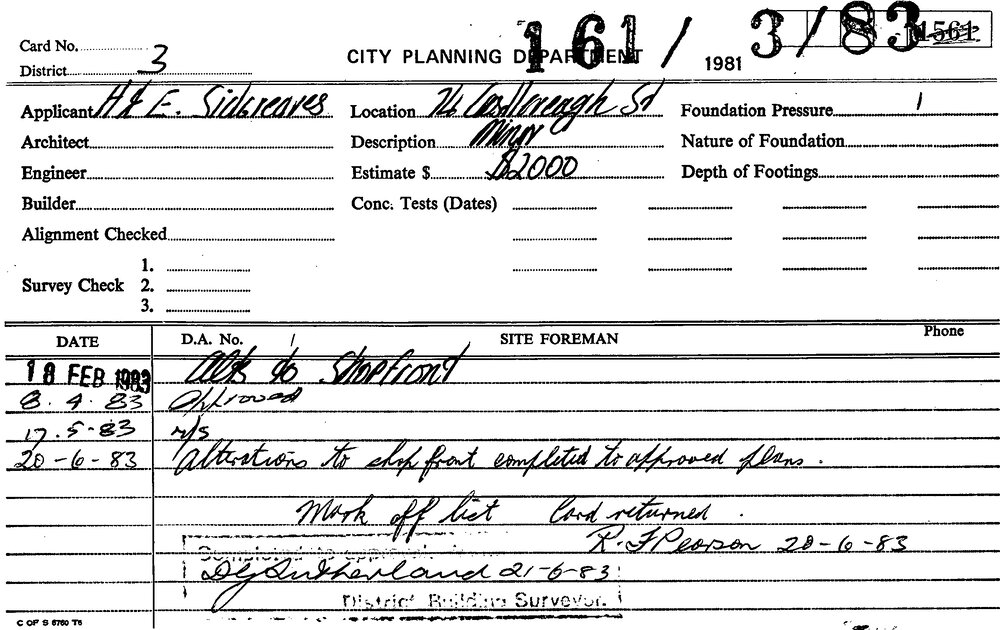 161/3/83
1561
Card No.
District 3
CITY PLANNING DEPARTMENT
1981
Applicant H & E. Sidgreaves
Location 74 Castlereagh St
Foundation Pressure
Architect
Description Minor
Nature of Foundation
Engineer
Estimate $ $2000
Depth of Footings
Builder
Conc. Tests (Dates)
Alignment Checked
Survey Check
1.
2.
3.
DATE
D.A. No.
SITE FOREMAN
Phone
18 FEB 1983 Alts to Shopfront
8.4.83 Approved
17.5.83 n/s
20-6-83 Alterations to shop front completed to approved plans.
Mark off list Card returned.
R. F Pearson 20-6-83
Completed to approval
D G Sutherland 21-6-83
District Building Surveyor.
C OF S 6760 T6